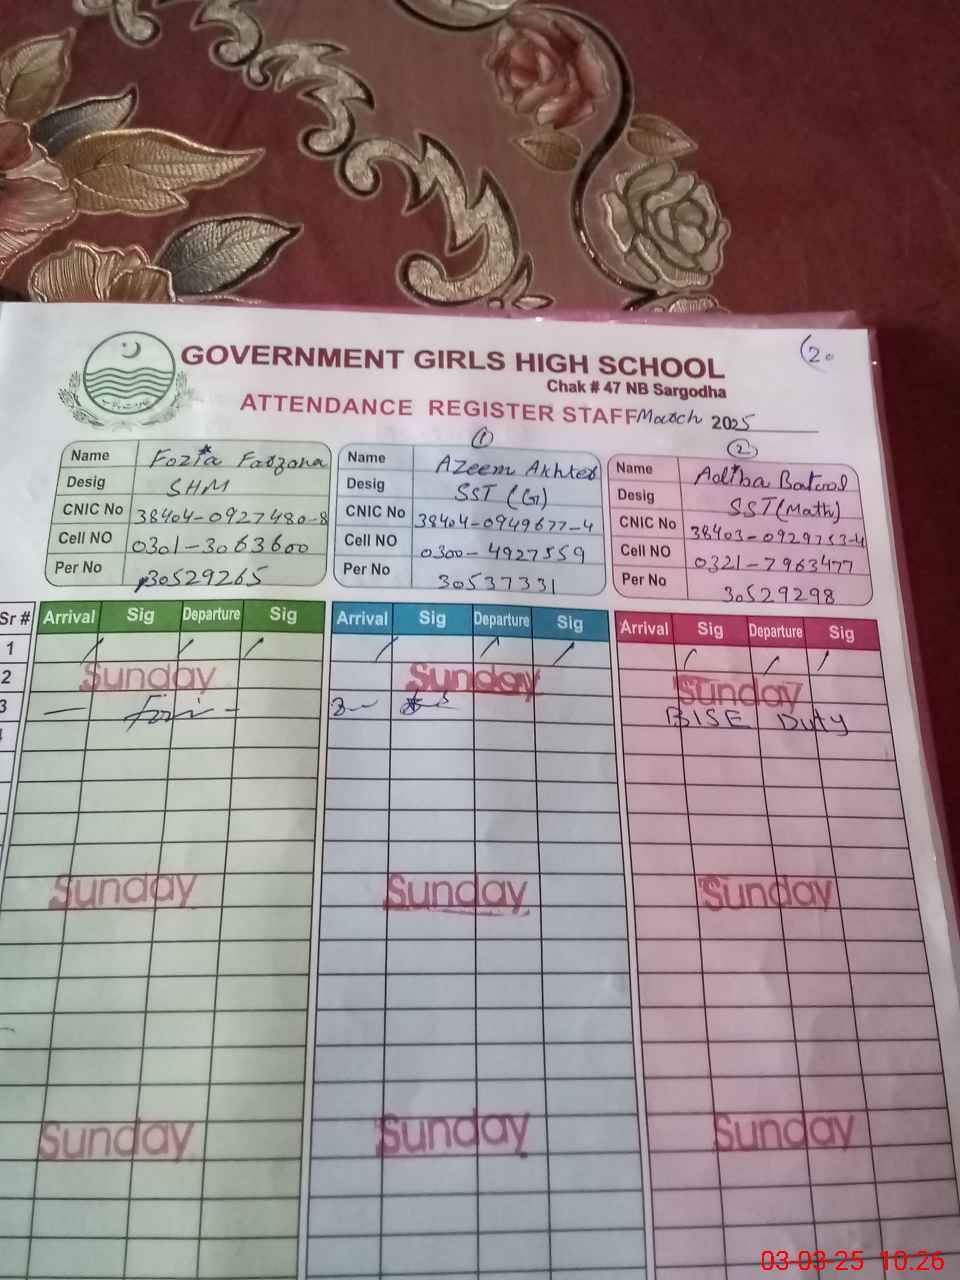 (20
GOVERNMENT GIRLS HIGH SCHOOL
Chak # 47 NB Sargodha
ATTENDANCE REGISTER STAFF March 2025
1
2
Name Fozia Farzana
Desig SHM
CNIC No 38404-0927480-8
Cell NO 0301-3063600
Per No 30529265
Name Azeem Akhter
Desig SST (G)
CNIC No 38404-0949677-4
Cell NO 0300-4927559
Per No 30537331
Name Batool
Desig SST (Math)
CNIC No 38403-0929753-4
Cell NO 0321-7963477
Per No 30529298
Sr # Arrival Sig Departure Sig Arrival Sig Departure Sig Arrival Sig Departure Sig
1
2 Sunday Sunday Sunday
3 BISE Duty
Sunday Sunday Sunday
Sunday Sunday Sunday
03-03-25 10:26